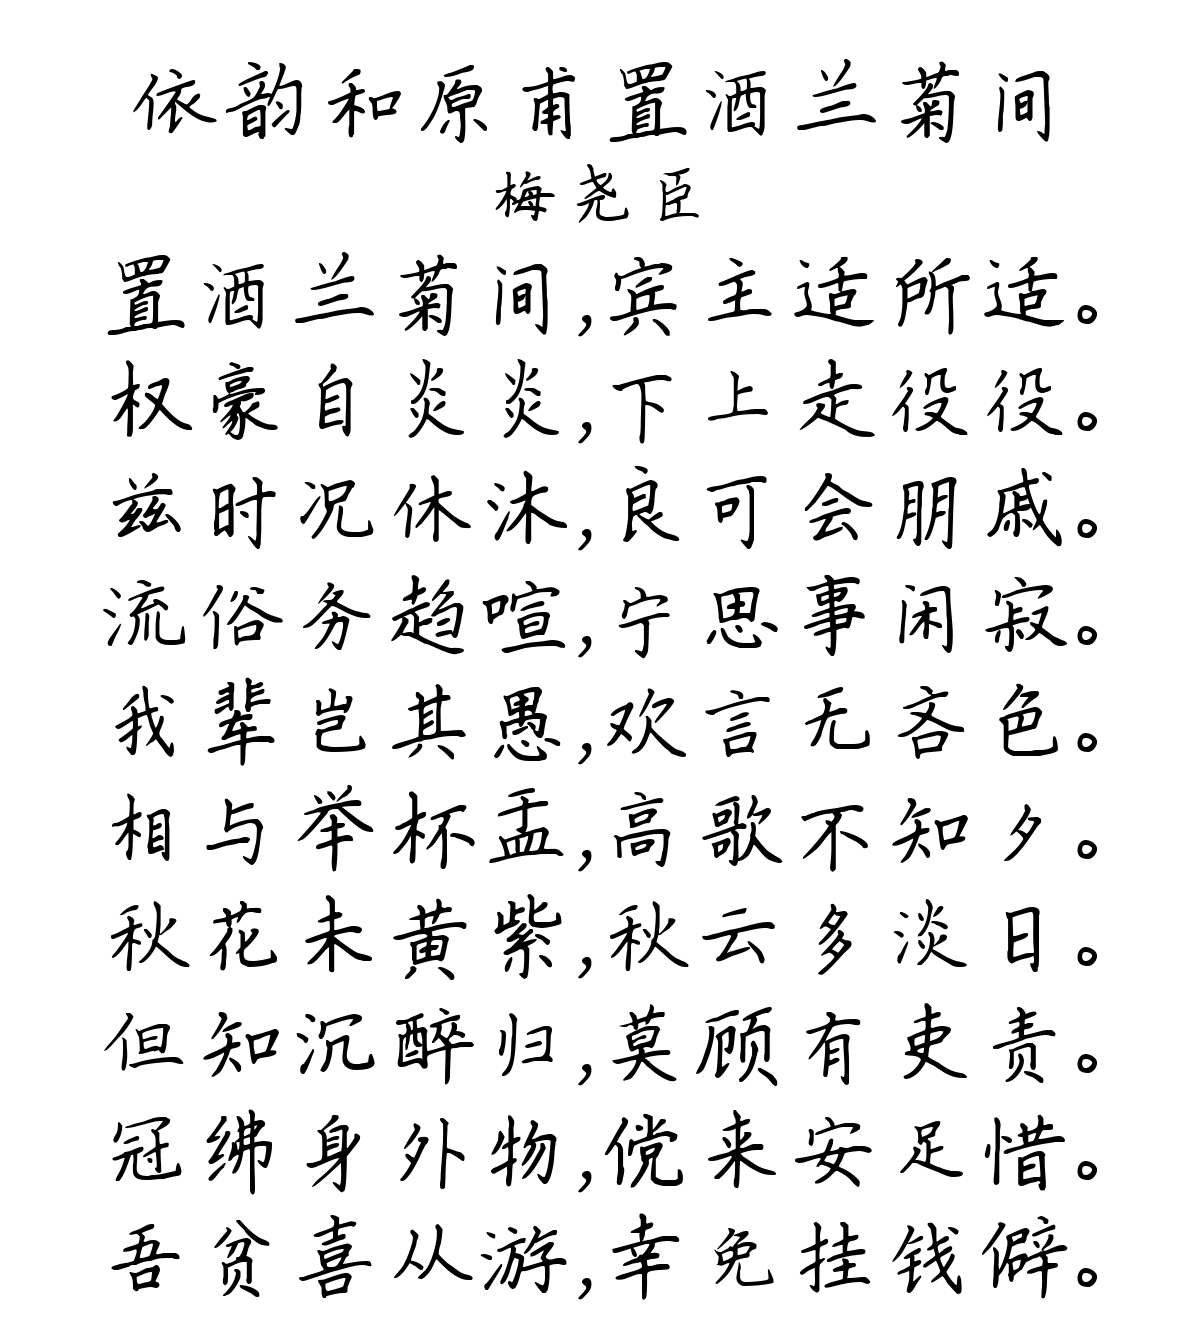 依韵和原甫置酒兰菊间
梅尧臣
置酒兰菊间,宾主适所适。
权豪自炎炎,下上走役役。
兹时况休沐,良可会朋戚。
流俗务趋喧,宁思事闲寂。
我辈岂其愚,欢言无吝色。
相与举杯盂,高歌不知夕。
秋花未黄紫,秋云多淡日。
但知沉醉归,莫顾有吏责。
冠绋身外物,傥来安足惜。
吾贫喜从游,幸免挂钱僻。